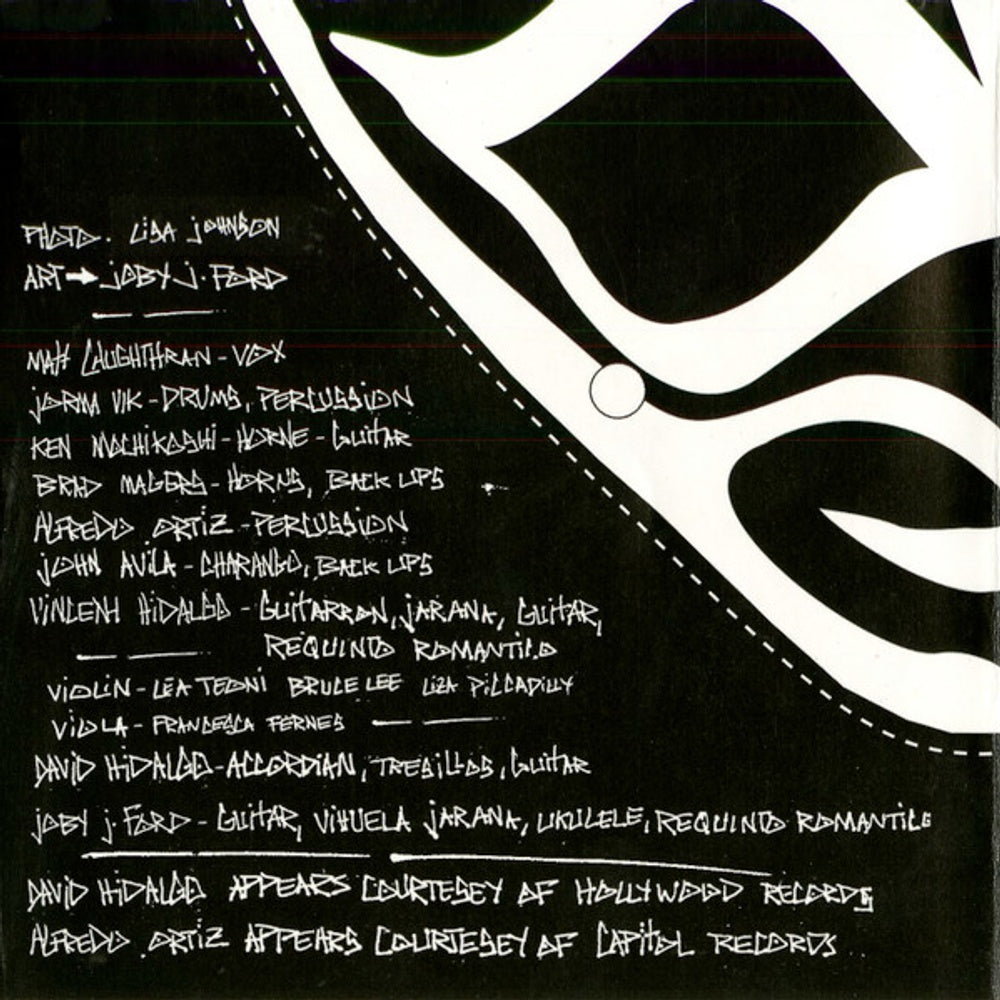 PHOTO. LISA JOHNSON
ART→JOBY J. FORD
MATT CAUGHTHRAN - VOX
JORMA VIK - DRUMS, PERCUSSION
KEN MOCHIKOSHI - HORNE - GUITAR
BRAD MAGERS - HORNS, BACK UPS
ALFREDO ORTIZ - PERCUSSION
JOHN AVILA - CHARANGO, BACK UPS
VINCENT HIDALGO - GUITARRON, JARANA, GUITAR,
REQUINTO ROMANTICO
VIOLIN - LEA TEONI BRUCE LEE LIZA PICCADILLY
VIOLA - FRANCESCA FERNES
DAVID HIDALGO - ACCORDIAN, TRESILLOS, GUITAR
JOBY J. FORD - GUITAR, VIHUELA JARANA, UKULELE, REQUINTO ROMANTICO
DAVID HIDALGO APPEARS COURTESEY OF HOLLYWOOD RECORDS
ALFREDO ORTIZ APPEARS COURTESEY OF CAPITOL RECORDS